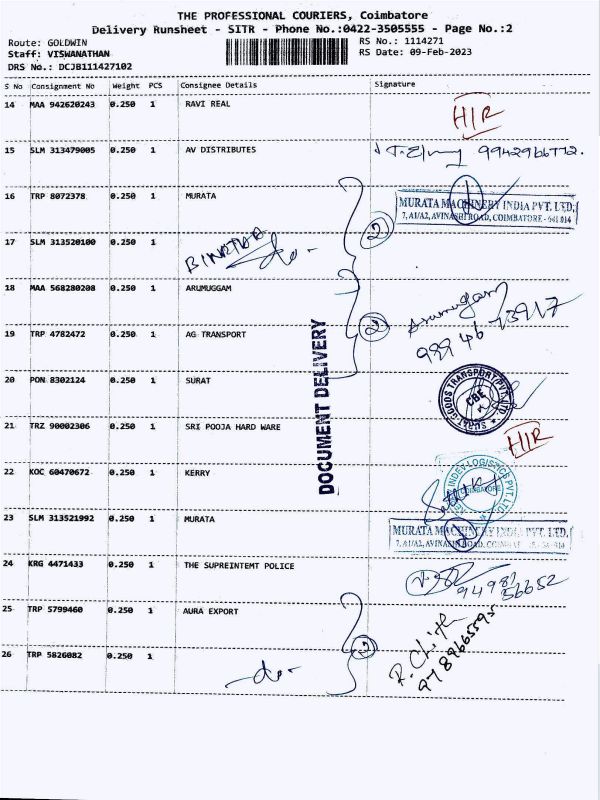 THE PROFESSIONAL COURIERS, Coimbatore
Delivery Runsheet - SITR - Phone No.:0422-3505555 - Page No.:2
Route: GOLDWIN RS No.: 1114271
Staff: VISWANATHAN RS Date: 09-Feb-2023
DRS No.: DCJB111427102
S No Consignment No Weight PCS Consignee Details Signature
14 MAA 942620243 0.250 1 RAVI REAL H/R
15 SLM 313479005 0.250 1 AV DISTRIBUTES
16 TRP 8072378 0.250 1 MURATA 2 MURATA MACHINERY INDIA PVT. LTD.
7, A1/A2, AVINASHI ROAD, COIMBATORE - 641 014
17 SLM 313520100 0.250 1 -do-
18 MAA 568280208 0.250 1 ARUMUGGAM 2 Arumugam
19 TRP 4782472 0.250 1 AG TRANSPORT
DOCUMENT DELIVERY
20 PON 8302124 0.250 1 SURAT SURAT GOODS TRANSPORT PVT. LTD. CBE
21 TRZ 90002306 0.250 1 SRI POOJA HARD WARE H/R
22 KOC 60470672 0.250 1 KERRY
23 SLM 313521992 0.250 1 MURATA MURATA MACHINERY INDIA PVT. LTD.
24 KRG 4471433 0.250 1 THE SUPREINTEMT POLICE
25 TRP 5799460 0.250 1 AURA EXPORT 2
9789665595
26 TRP 5826082 0.250 1 -do-